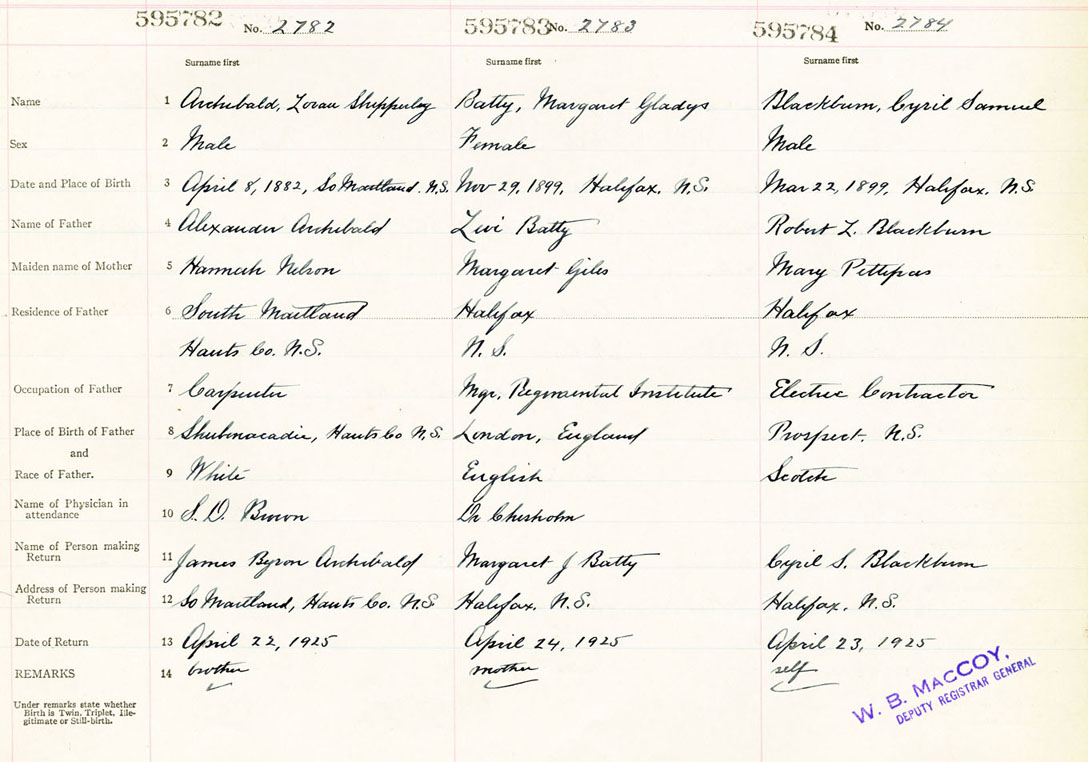 595782 No. 2782 595783 No. 2783 595784 No. 2784
Surname first Surname first Surname first
Name 1 Archibald, Loran Shipperley Batty, Margaret Gladys Blackburn, Cyril Samuel
Sex 2 Male Female Male
Date and Place of Birth 3 April 8, 1882, So Maitland. N.S. Nov 29, 1899, Halifax, N.S. Mar 22, 1899, Halifax, N.S
Name of Father 4 Alexander Archibald Levi Batty Robert L. Blackburn
Maiden name of Mother 5 Hannah Nelson Margaret Giles Mary Pettipas
Residence of Father 6 South Maitland Halifax Halifax
Hants Co. N.S. N. S. N. S.
Occupation of Father 7 Carpenter Mgr, Regimental Institute Electric Contractor
Place of Birth of Father 8 Shubenacadie, Hants Co N.S. London, England Prospect. N.S.
and
Race of Father. 9 White English Scotch
Name of Physician in
attendance 10 S. D. Brown Dr Chisholm
Name of Person making
Return 11 James Byron Archibald Margaret J Batty Cyril S. Blackburn
Address of Person making
Return 12 So Maitland, Hants Co. N.S Halifax, N.S. Halifax, N.S.
Date of Return 13 April 22, 1925 April 24, 1925 April 23, 1925
REMARKS 14 brother mother self
Under remarks state whether
Birth is Twin, Triplet, Ille-
gitimate or Still-birth.
W. B. MacCOY,
DEPUTY REGISTRAR GENERAL